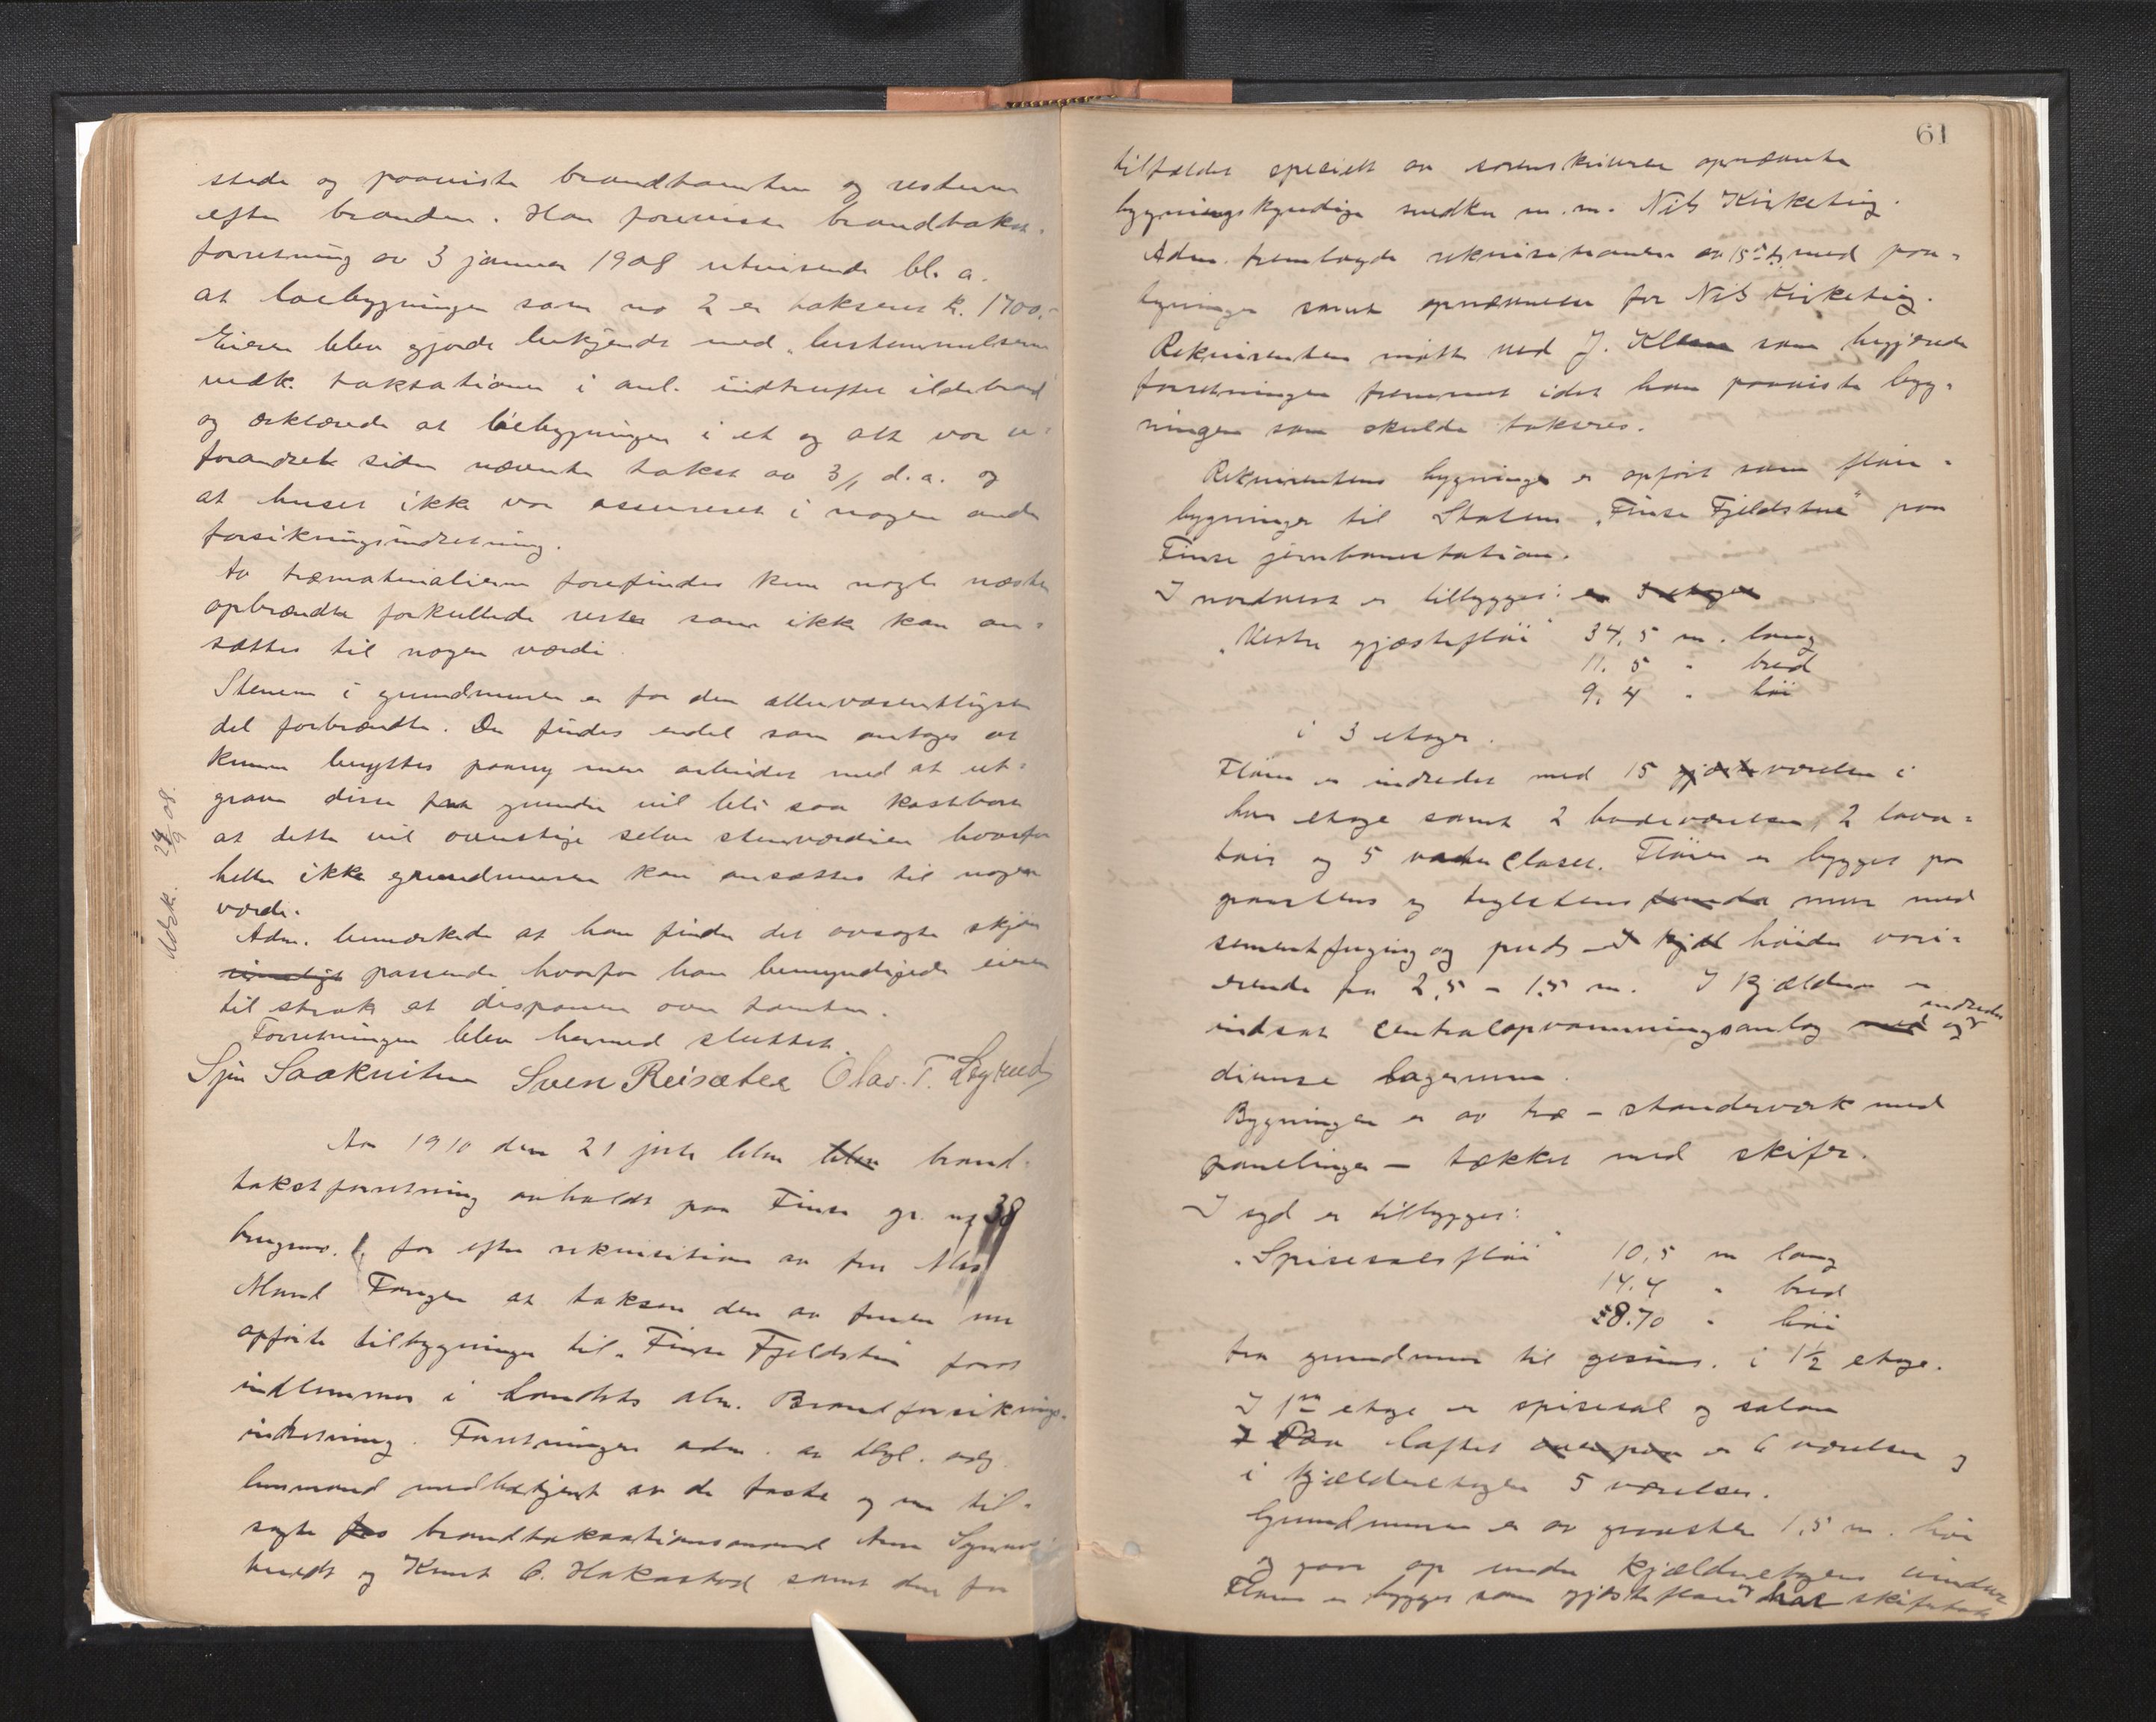 stede og paaviste brandtomten og resterne
efter branden. Han foreviste brandtakst-
forretning av 3 januar 1908 utvisende bl. a.
at løebygningen som no 2 er taksert k. 1700.-
Eieren blev gjorde bekjendt med bestemmelserne
vedk. taksationer i anl. indtruffet ildebrand
og erklærede at løebygningen i et og alt var u-
forandret siden nævnte takst av 3/1 d.a. og
at huset ikke var assureret i nogen anden
forsikringsindretning.
Av træmaterialierne forefindes kun nogle næsten
opbrændte forkullede rester som ikke kan an-
sættes til nogen værdi.
Stenene i grundmuren er for den allervæsentligste
del forbrændte. Der findes endel som antages at
kunne benyttes paany men arbeidet med at ut-
grave disse fra grunden vil bli saa kostbart
at dette vil overstige selve stenværdien hvorfor
heller ikke grundmuren kan ansættes til nogen
værdi.
Adm. bemerkede at han finder det avsagte skjøn
rimeligt passende hvorfor han bemyndigede eieren
til straks at disponere over tomten.
Forretningen blev hermed sluttet.
Sven Reisæter Olav. T.
Utsk. 24/9 08.
Aar 1910 den 21 juli blev blev brand-
takstforretning avholdt paa Finse gr. no 38
brugsno. 1, for efter rekvisition av fru Alice
Maml Fangen at taksere den av fruen nu
opførte tilbygninger til "Finse Fjeldstue" forat
indlemmes i Landets alm. Brandforsikrings-
indretning. Forretningen adm. av
lensmand med betjent av de faste og nu til-
sagte fas brandtaksationsmænd Arne
og Knut O. Hakastad samt den for
61
tilfældet specielt av sorenskriveren opnævnte
bygningskyndige snedker m.m. Nils Kirketeig.
Adm. fremlagde rekvisitionen av 15de ds. med paa-
tegninger samt opnævnelse for Nils Kirketeig.
Rekvirenten møtte ved J. Klem som begjærede
forretningen fremmet idet han paaviste byg-
ningen som skulde takseres.
Rekvirentens bygninger er opført som fløi-
bygninger til Statens "Finse Fjeldstue" paa
Finse jernbanestation.
I nordvest er tilbygget: en 3 etager
"Vestre gjæstefløi" 34,5 m. lang
11,5 " bred
9,4 " høi
i 3 etager.
Fløien er indredet med 15 gjæsteværelser i
hver etage samt 2 badeværelser, 2 lava-
toir og 5 vater closet. Fløien er bygget paa
graasten og teglstens mur med
sementfuging og puds høide vari-
erende fra 2,5 - 1,5 m. I kjælderen er
indsat centralopvarmningsanlæg med og indredet
diverse lagerrum.
Bygningen er av træ - standerværk med
panelinger - tækket med skifer.
I syd er tilbygget:
"Spisesalsfløi" 10,5 m lang
14.4 " bred
8.70 " høi
fra grundmur til gesims. i 1½ etage.
I 1ste etage er spisesal og salon
Paa loftet er 6 værelser og
i kjælderetagen 5 værelser.
Grundmuren er av graasten 1,5 m. høi
og gaar op under kjælderetagens vinduer
Fløien er bygget som gjæstefløien og har skifertak